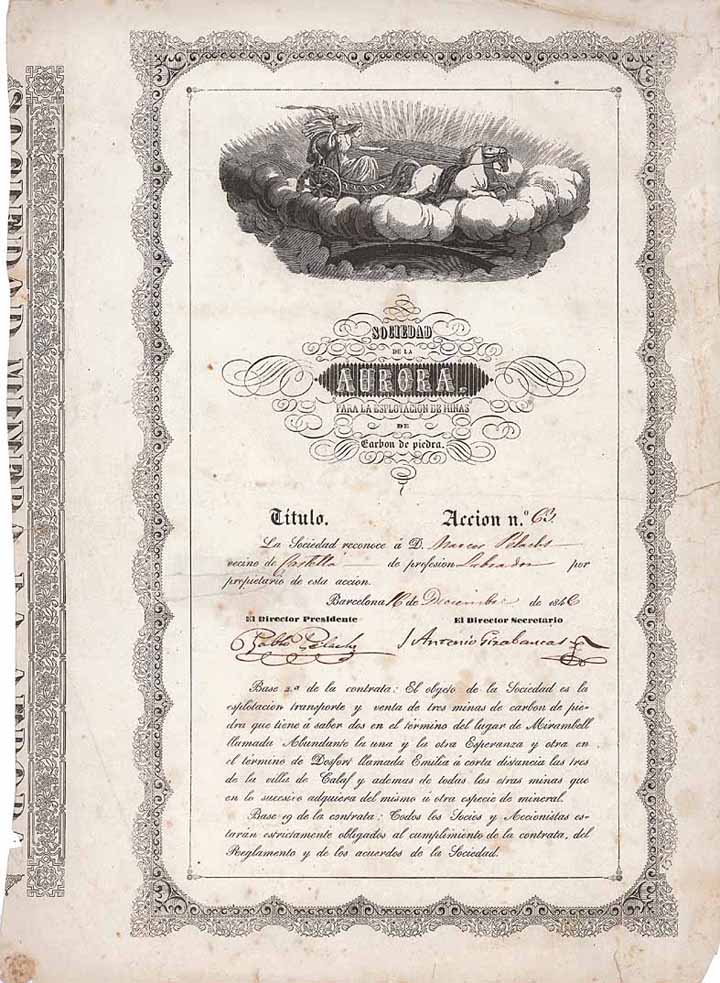 SOCIEDAD MINERA LA AURORA
SOCIEDAD
DE LA
AURORA,
PARA LA ESPLOTACION DE MINAS
DE
Carbon de piedra.
Título. Accion n.º 63.
La Sociedad reconoce á D. Marcos Pelachs
vecino de de profesion Labrador por
propietario de esta accion.
Barcelona 16 de Diciembre de 1846
El Director Presidente El Director Secretario
Pablo Pelachs Antonio
Base 2.a de la contrata: El objeto de la Sociedad es la
esplotacion transporte y venta de tres minas de carbon de pie-
dra que tiene á saber dos en el término del lugar de Mirambell
llamada Abundante la una y la otra Esperanza y otra en
el término de Dosfort llamada Emilia á corta distancia las tres
de la villa de Calaf y ademas de todas las otras minas que
en lo sucesivo adquiera del mismo ú otra especie de mineral.
Base 19 de la contrata: Todos los Socios y Accionistas es-
tarán estrictamente obligados al cumplimiento de la contrata, del
Reglamento y de los acuerdos de la Sociedad.